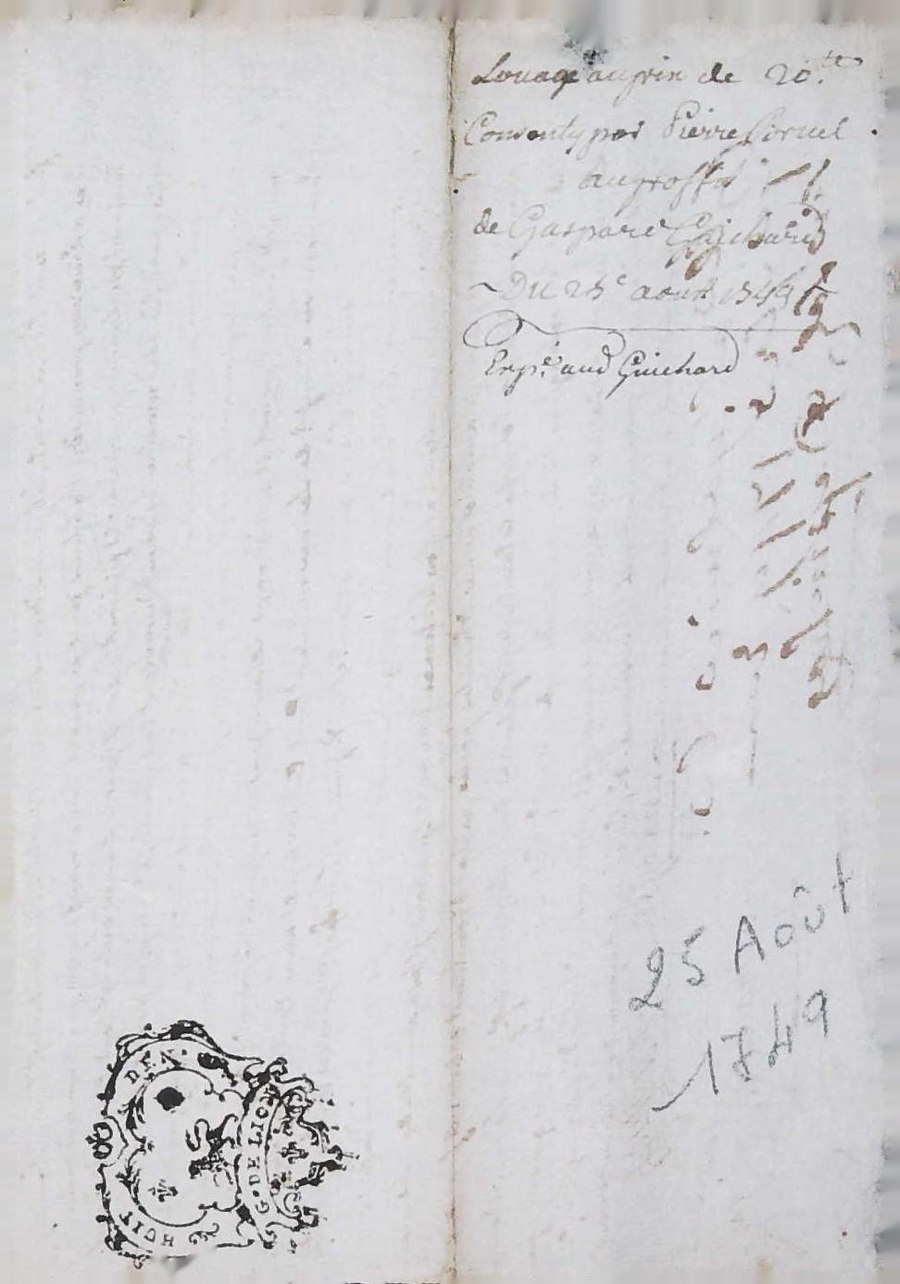 Louage au prix de 20.tt
Consenty par Pierre
au proffit
de Gaspard Guichard
Du 25e aout 1749
Exp.é aud Guichard
25 Août
1749
HUIT DEN.
G. DE LION